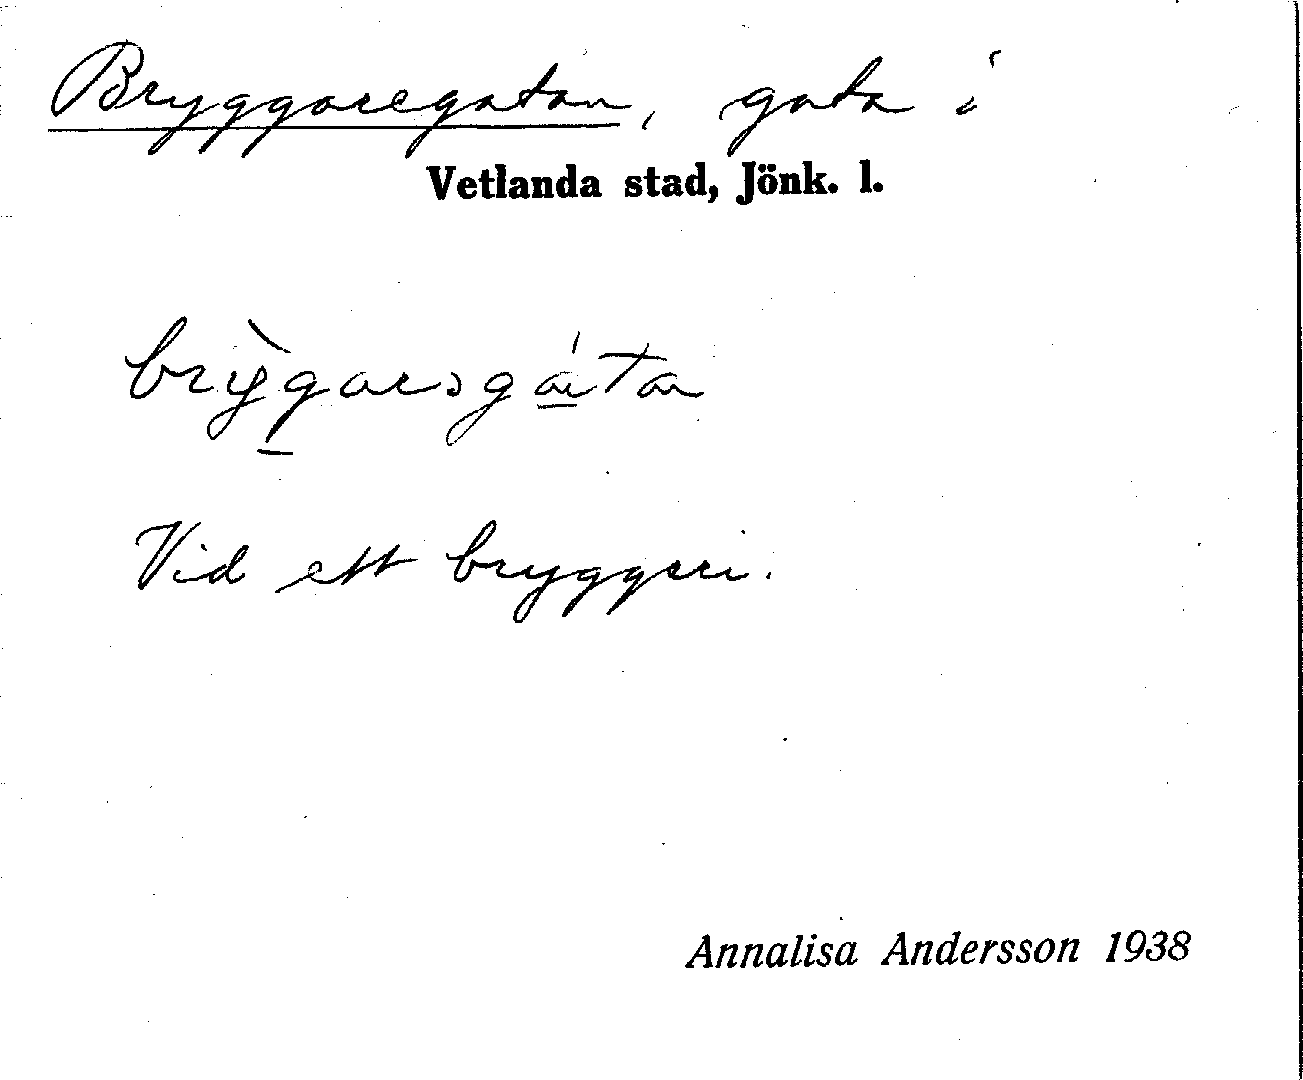 Bryggaregatan, gata i
Vetlanda stad, Jönk. l.
brỳg̱arəgá̱tan
Vid ett bryggeri.
Annalisa Andersson 1938